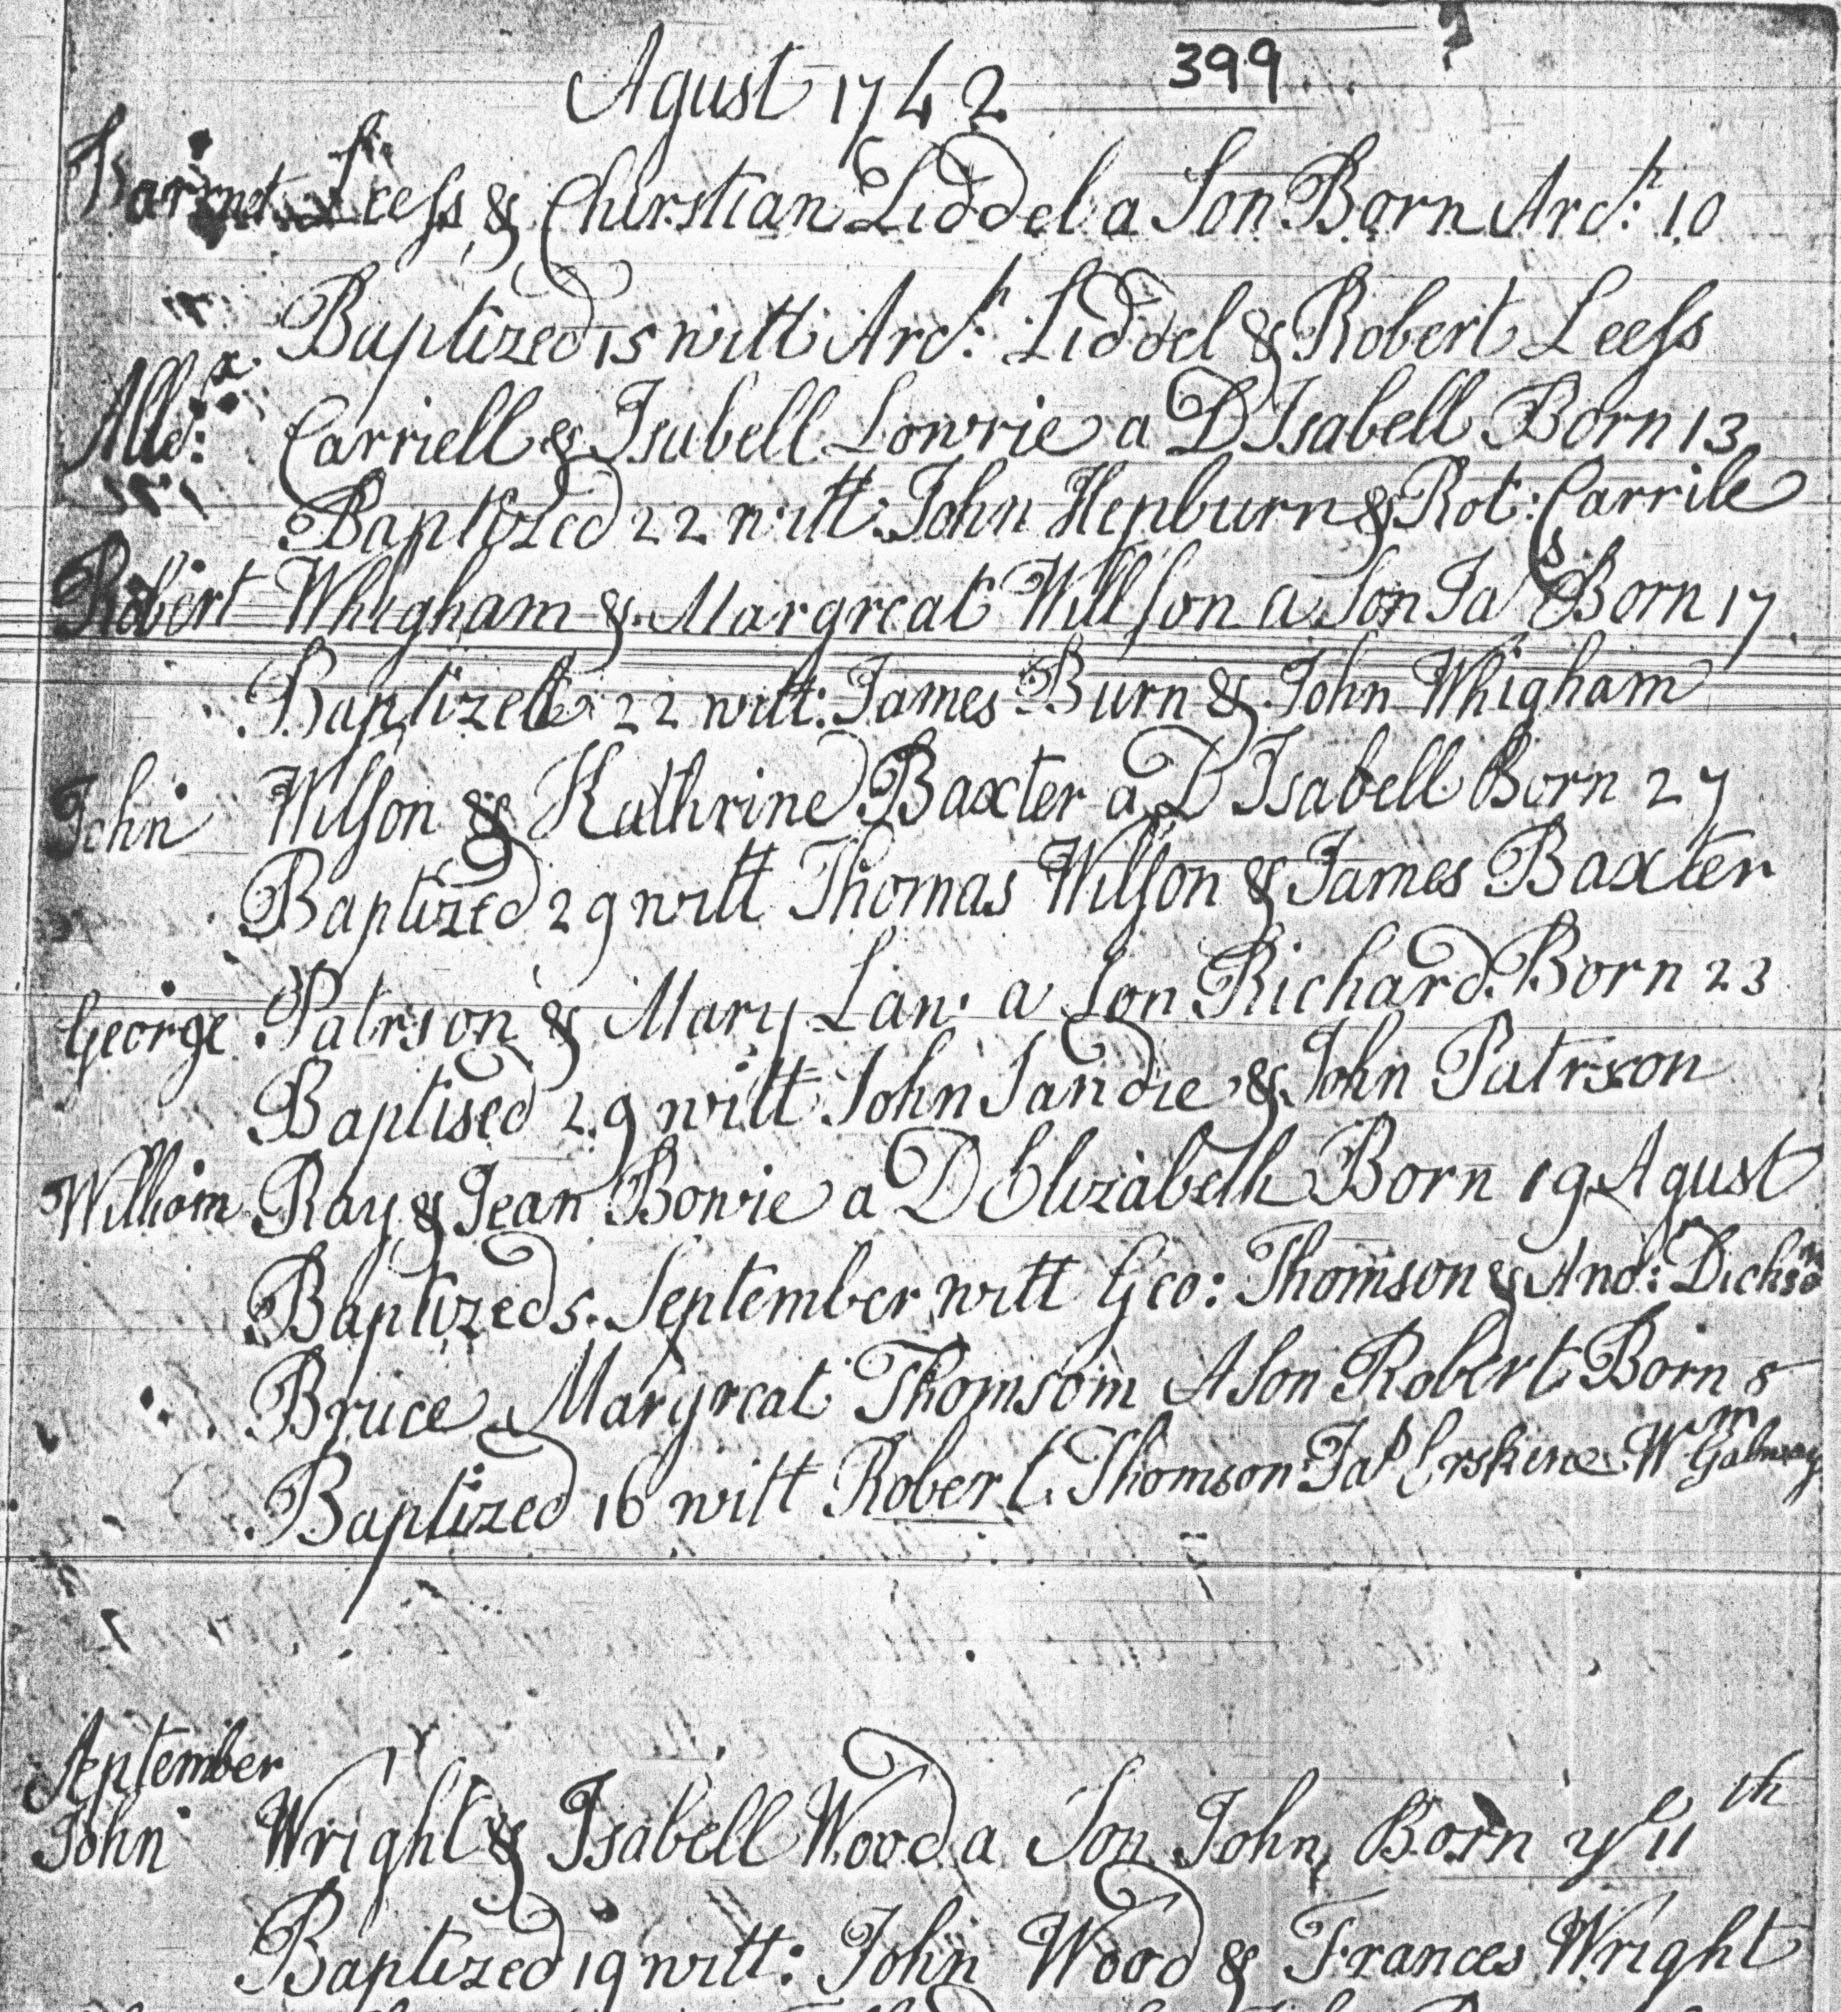 Agust 1742 399
Leess & Chirstian Liddel a Son Born Arc:h 10
Baptized 15 witt Arc:h Liddel & Robert Leess
Alle:x Carriell & Isabell Lowrie a D Isabell Born 13
Baptized 22 witt: John Hepburn & Rot: Carrile
Robert Whigham & Margreat Willson a Son Jas Born 17
Baptized 22 witt: James Burn & John Whigham
John Wilson & Kathrine Baxter a D Isabell Born 27
Baptized 29 witt Thomas Wilson & James Baxter
George Patrson & Mary Law a Son Richard Born 23
Baptised 29 witt John Sandie & John Patrson
William Ray & Jean Bowie a D Elizabeth Born 19 Agust
Baptized 5 September witt Geo: Thomson & And: Dickson
Bruce Margreat Thomsom A Son Robert Born 8
Baptized 16 witt Robert Thomson Jas Erskine Wm Galway
September
John Wright & Isabell Wood a Son John Born ye 11th
Baptized 19 witt: John Wood & Frances Wright